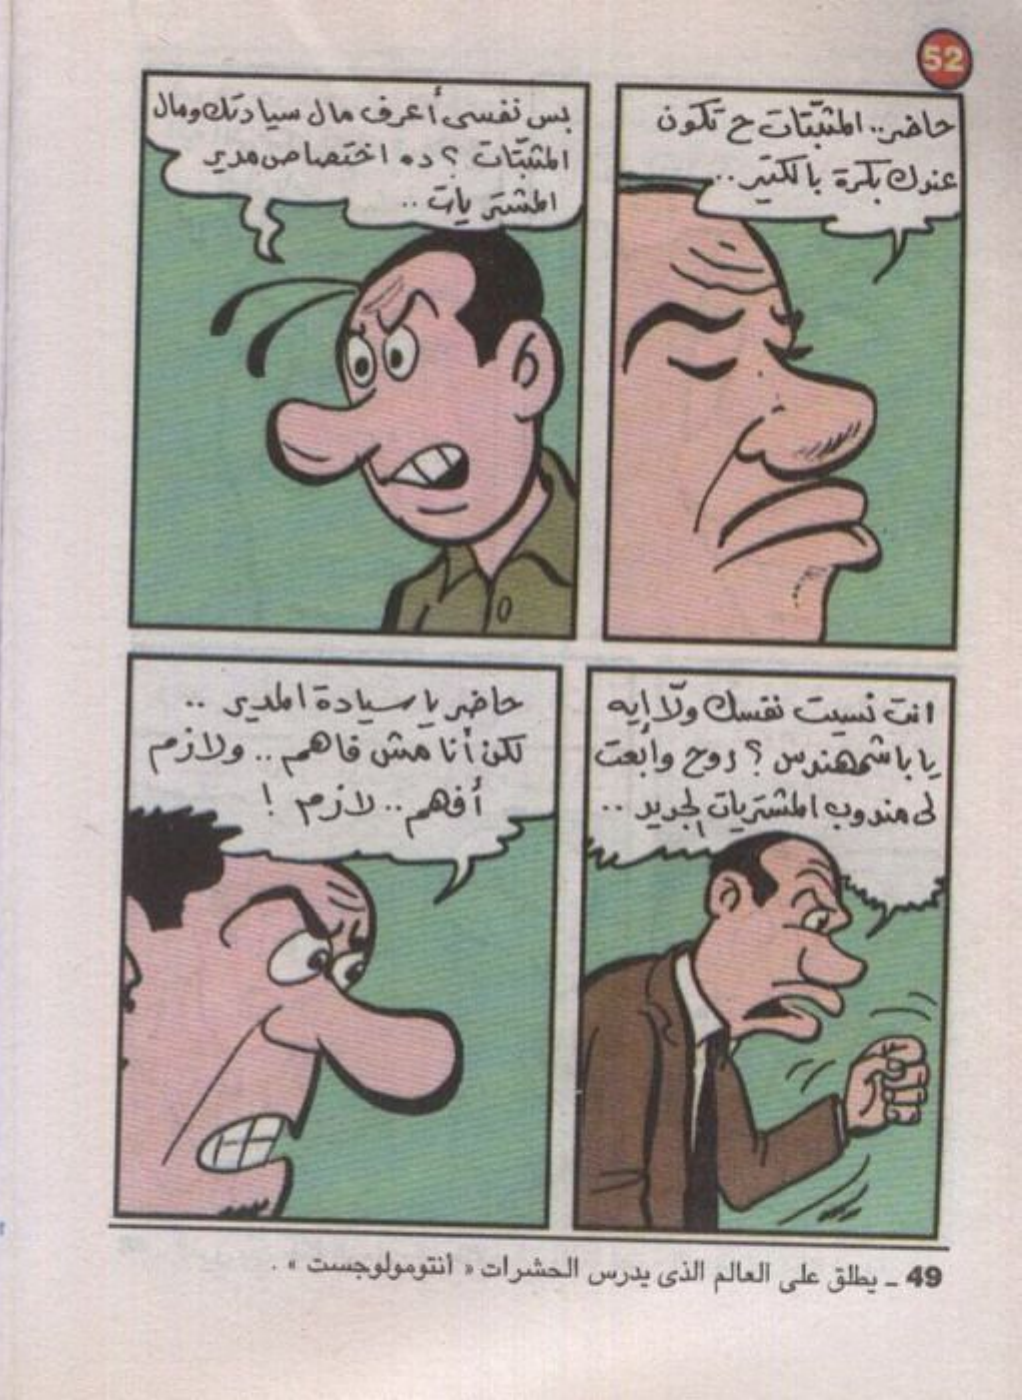 52
حاضر.. المثبّتات ح تكون
عندك بكرة بالكتير..
بس نفسى أعرف مال سيادتك ومال
المثبّتات ؟ ده اختصاص مدير
المشتريات ..
انت نسيت نفسك ولّا إيه
يا باشمهندس ؟ روح وابعت
لى مندوب المشتريات الجديد ..
حاضر يا سيادة المدير ..
لكن أنا مش فاهم .. ولازم
أفهم .. لازم !
49 ــ يطلق على العالم الذى يدرس الحشرات « أنتومولوجست » .